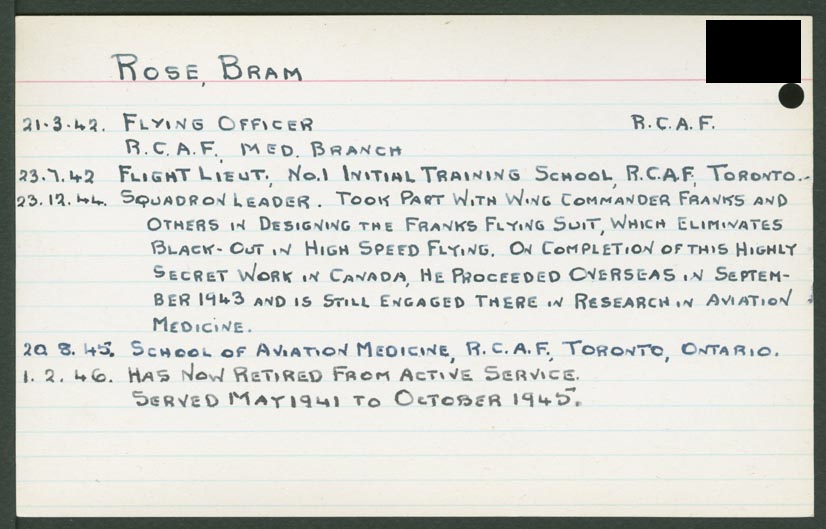 ROSE, BRAM
21.3.42. FLYING OFFICER R.C.A.F.
R.C.A.F., MED. BRANCH
23.7.42 FLIGHT LIEUT., NO.1 INITIAL TRAINING SCHOOL, R.C.A.F., TORONTO.
23.12.44. SQUADRON LEADER. TOOK PART WITH WING COMMANDER FRANKS AND
OTHERS IN DESIGNING THE FRANKS FLYING SUIT, WHICH ELIMINATES
BLACK-OUT IN HIGH SPEED FLYING. ON COMPLETION OF THIS HIGHLY
SECRET WORK IN CANADA, HE PROCEEDED OVERSEAS IN SEPTEM-
BER 1943 AND IS STILL ENGAGED THERE IN RESEARCH IN AVIATION
MEDICINE.
20.8.45. SCHOOL OF AVIATION MEDICINE, R.C.A.F., TORONTO, ONTARIO.
1.2.46. HAS NOW RETIRED FROM ACTIVE SERVICE.
SERVED MAY 1941 TO OCTOBER 1945.